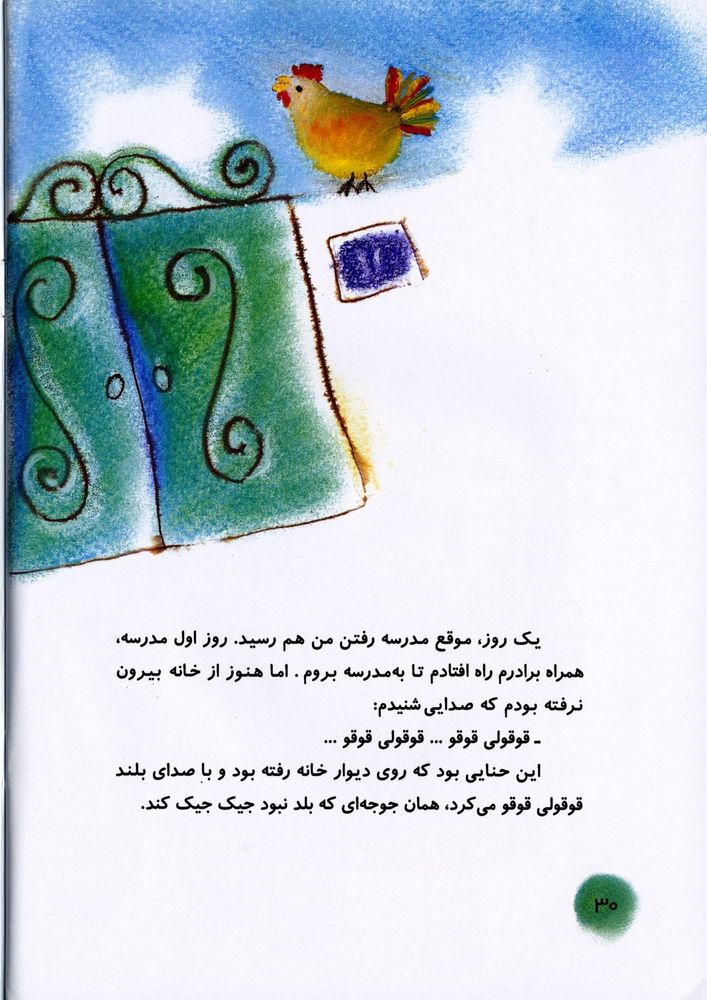 یک روز، موقع مدرسه رفتن من هم رسید. روز اول مدرسه،
همراه برادرم راه افتادم تا به‌مدرسه بروم. اما هنوز از خانه بیرون
نرفته بودم که صدایی شنیدم:
ـ قوقولی قوقو ... قوقولی قوقو ...
این حنایی بود که روی دیوار خانه رفته بود و با صدای بلند
قوقولی قوقو می‌کرد، همان جوجه‌ای که بلد نبود جیک جیک کند.
۳۰